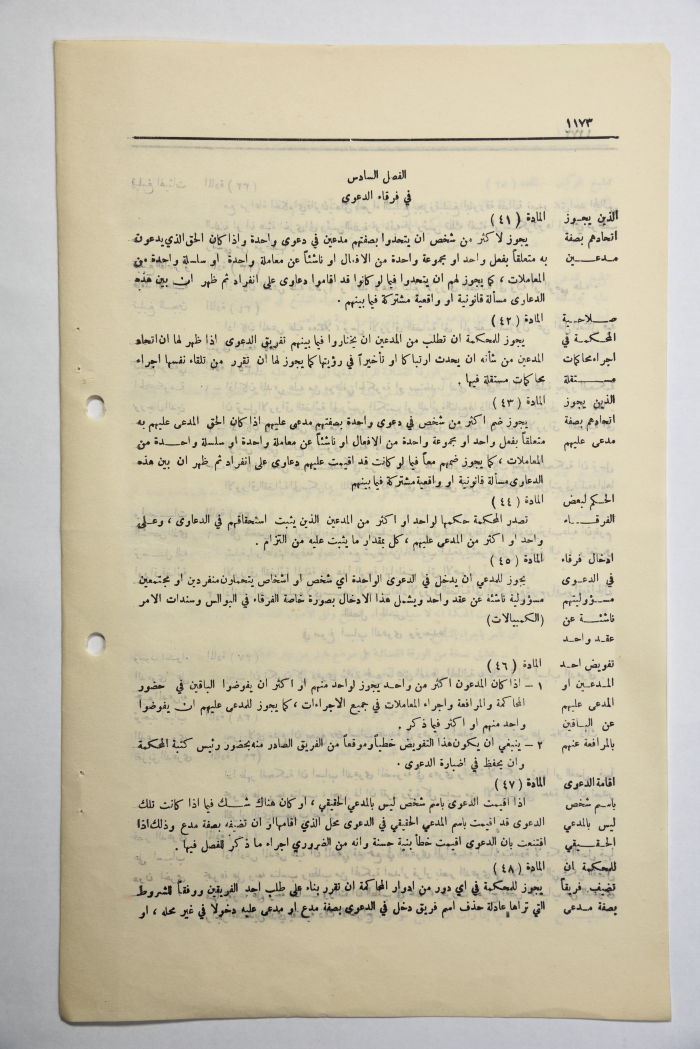 ١١٧٣
الفصل السادس
في فرقاء الدعوى
الذين يجوز
اتحادهم بصفة
مدعين
المادة (٤١)
يجوز لاكثر من شخص ان يتحدوا بصفتهم مدعين في دعوى واحدة واذا كان الحق الذي يدعون
به متعلقاً بفعل واحد او بمجموعة واحدة من الافعال او ناشئاً عن معاملة واحدة او سلسلة واحدة من
المعاملات ، كما يجوز لهم ان يتحدوا فيما لو كانوا قد اقاموا دعاوى على انفراد ثم ظهر ان بين هذه
الدعاوى مسألة قانونية او واقعية مشتركة فيما بينهم .
صلاحية
المحكمة في
اجراء محاكمات
مستقلة
المادة (٤٢)
يجوز للمحكمة ان تطلب من المدعين ان يختاروا فيما بينهم تفريق الدعوى اذا ظهر لها ان اتحاد
المدعين من شأنه ان يحدث ارتباكا او تأخيراً في رؤيتها كما يجوز لها ان تقرر من تلقاء نفسها اجراء
محاكمات مستقلة فيها .
الذين يجوز
اتحادهم بصفة
مدعى عليهم
المادة (٤٣)
يجوز ضم اكثر من شخص في دعوى واحدة بصفتهم مدعى عليهم اذا كان الحق المدعى عليهم به
متعلقاً بفعل واحد او بمجموعة واحدة من الافعال او ناشئاً عن معاملة واحدة او سلسلة واحدة من
المعاملات ، كما يجوز ضمهم معاً فيما لو كانت قد اقيمت عليهم دعاوى على انفراد ثم ظهر ان بين هذه
الدعاوى مسألة قانونية او واقعية مشتركة فيما بينهم
الحكم لبعض
الفرقاء
المادة (٤٤)
تصدر المحكمة حكمها لواحد او اكثر من المدعين الذين يثبت استحقاقهم في الدعاوى ، وعلى
واحد او اكثر من المدعى عليهم ، كل بمقدار ما يثبت عليه من التزام .
ادخال فرقاء
في الدعوى
مسؤوليتهم
ناشئة عن
عقد واحد
المادة (٤٥)
يجوز للمدعي ان يدخل في الدعوى الواحدة اي شخص او اشخاص يتحملون منفردين او مجتمعين
مسؤولية ناشئه عن عقد واحد ويشمل هذا الادخال بصورة خاصة الفرقاء في البوالس وسندات الامر
(الكمبيالات)
تفويض احد
المدعين او
المدعى عليهم
عن الباقين
بالمرافعة عنهم
المادة (٤٦)
١ – اذا كان المدعون اكثر من واحد يجوز لواحد منهم او اكثر ان يفوضوا الباقين في حضور
المحاكمة والمرافعة واجراء المعاملات في جميع الاجراءات ، كما يجوز للمدعى عليهم ان يفوضوا
واحد منهم او اكثر فيما ذكر .
٢ – ينبغي ان يكون هذا التفويض خطياً وموقعاً من الفريق الصادر منه بحضور رئيس كتبة المحكمة
وان يحفظ في اضبارة الدعوى .
اقامة الدعوى
باسم شخص
ليس بالمدعي
الحقيقي
المادة (٤٧)
اذا اقيمت الدعوى باسم شخص ليس بالمدعي الحقيقي ، او كان هناك شك فيما اذا كانت تلك
الدعوى قد اقيمت باسم المدعي الحقيقي في الدعوى محل الذي اقامها او ان تضيفه بصفة مدع وذلك اذا
اقتنعت بان الدعوى اقيمت خطأ بنية حسنة وانه من الضروري اجراء ما ذكر للفصل فيها .
للمحكمة ان
تضيف فريقاً
بصفة مدعى
المادة (٤٨)
يجوز للمحكمة في اي دور من ادوار المحاكمة ان تقرر بناء على طلب احد الفريقين ووفقاً للشروط
التي تراها عادلة حذف اسم فريق دخل في الدعوى بصفة مدع او مدعى عليه دخولاً في غير محله ، او